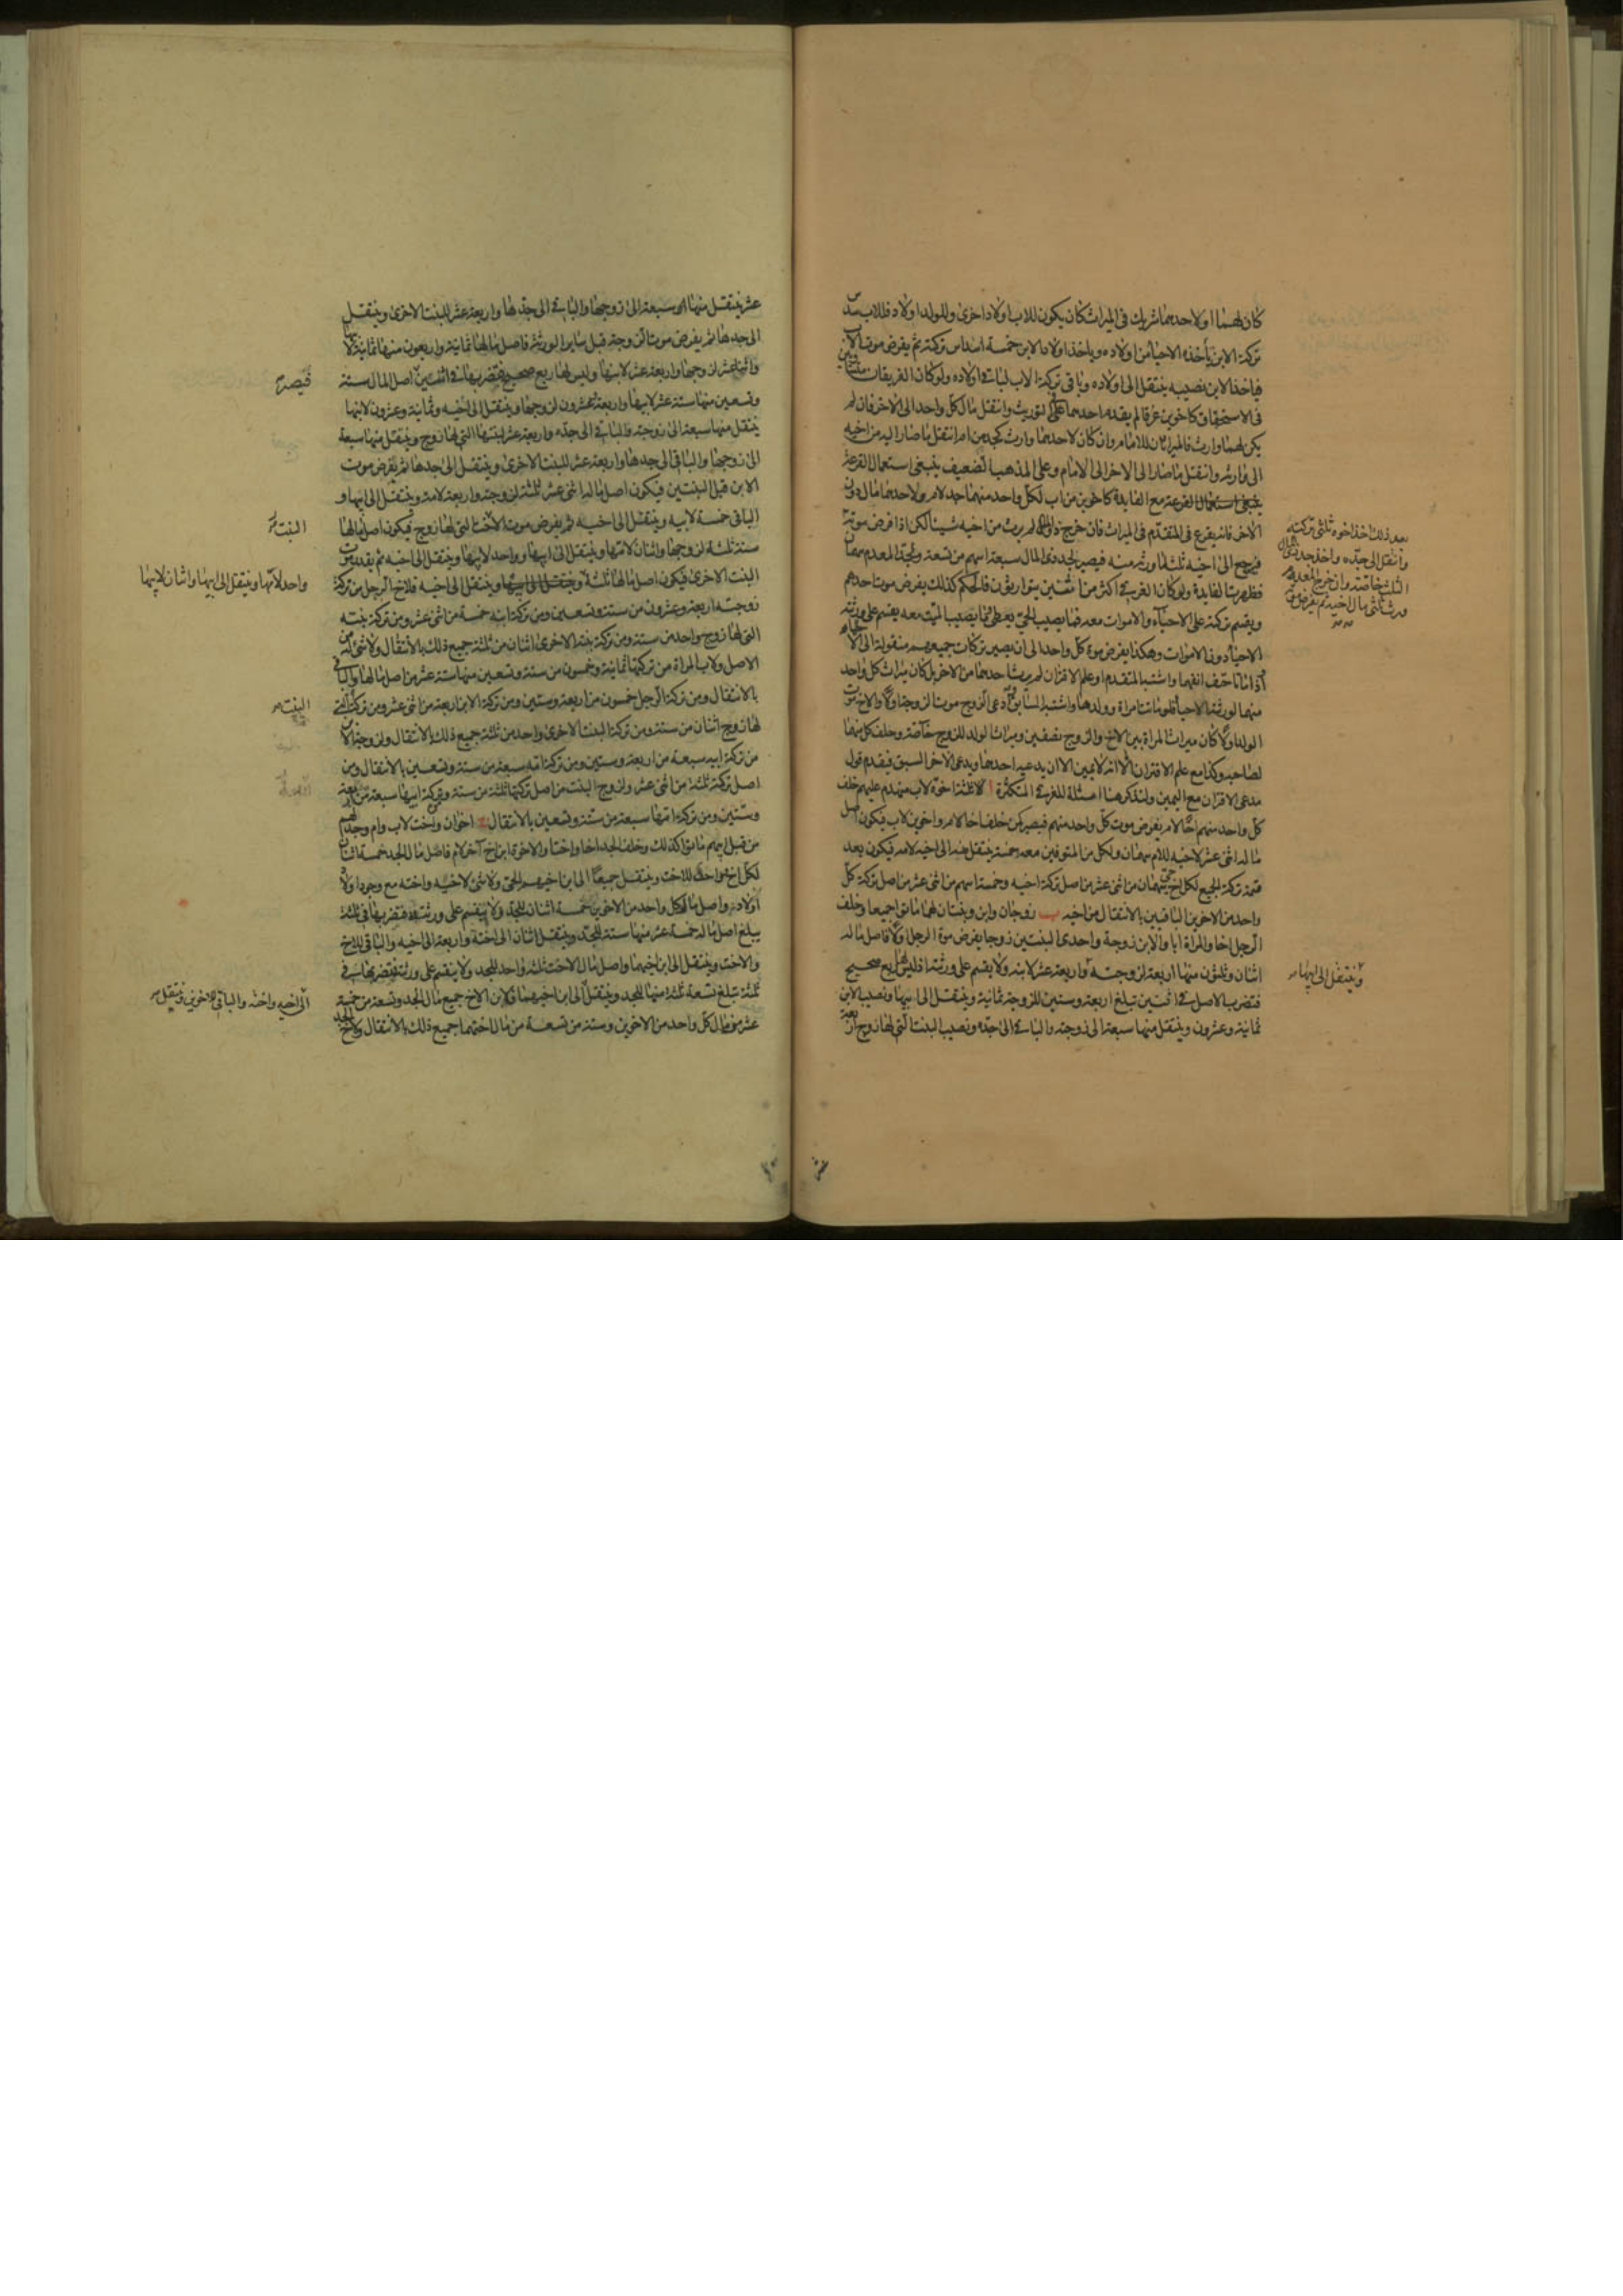 كان لهما او لاحدهما شريك في الميراث كان يكون للاب اولاد اخرى وللولد اولاد فللاب سدس
تركة الابن يأخذه الاحياء من اولاده وياخذ اولاد الابن خمسة اسداس تركته ثم يفرض موت الابن
فياخذ الابن نصيبه ينتقل الى اولاده وباقى تركة الاب لباقي اولاده ولو كان الغريقان متساويين
في الاستحقاق كاخوين غرقا لم يقدم احدهما على التوريث وانتقل مال كل واحد الى الاخر فان لم
يكن لهما وارث فالميراث للامام وان كان لاحدهما وارث كجد من ام انتقل ما صار اليه من اخيه
الى وارثه وانتقل ما صار الى الاخر الى الامام وعلى المذهب الضعيف ينبغي استعمال القرعة
ينبغي استعمال القرعة مع الفايدة كاخوين من اب لكل واحد منهما جد لام ولاحدهما مال دون
الاخر فانه يقرع في المتقدم في الميراث فان خرج ذو المال لم يرث من اخيه شيئا لكن اذا فرض موته
فيرجع الى اخيه ثلثه لما ورثه منه فيصير لجد ذي المال سبعة اسهم من تسعة ولجد المعدم سهمان
فظهرت الفايدة ولو كان الغرقى اكثر من اثنين يتوارثون فالحكم كذلك يفرض موت احدهم
ويقسم تركته على الاحياء والاموات معه فما يصيب الحي يعطى وما يصيب الميت معه يقسم على ورثته
الاحياء دون الاموات وهكذا يفرض موت كل واحد الى ان يصير تركات جميعهم منقولة الى الاحياء
اذا ماتا حتف انفهما واشتبه المتقدم او علم الاقتران لم يرث احدهما من الاخر بل كان ميراث كل واحد
منهما لورثته الاحياء فلو ماتت امراة وولدها واشتبه السابق وادعى الزوج موت الزوجة اولا والاخ موت
الولد اولا كان ميراث المراة بين الاخ والزوج نصفين وميراث الولد للزوج خاصة وحلف كل منهما
لصاحبه وكذا مع علم الاقتران الا انه لا يمين الا ان يدعيه احدهما ويدعى الاخر السبق فيقدم قول
مدعى الاقتران مع اليمين ولنذكر هنا امثلة للغرقى المتكثرة ا ثلاثة اخوة لاب منهدم عليهم خلف
كل واحد منهم اخا لام يفرض موت كل واحد منهم فيصير كمن خلف اخا لام واخوين لاب فيكون اصل
ماله اثنى عشر لاخيه للام سهمان ولكل من المتوفين معه خمسة ينتقل منه الى اخيه لامه فيكون بعد
قسمة تركة الجميع لكل اخ حي سهمان من اثنى عشر من اصل تركة اخيه وخمسة اسهم من اثنى عشر من اصل تركة كل
واحد من الاخوين الباقيين بالانتقال من اخيه ب زوجان وابن وبنتان لهما ماتوا جميعا وخلف
الرجل اخا والمراة ابا والابن زوجة واحدى البنتين زوجا يفرض موت الرجل اولا فاصل ماله
اثنان وثلثون منها اربعة لزوجته واربعة عشر لابنه ولا يقسم على ورثته اذ ليس لها ربع صحيح
فتضرب الاصل في اثنين تبلغ اربعة وستين للزوجة ثمانية وينتقل الى ابيها ونصيب الابن
ثمانية وعشرون وينتقل منها سبعة الى زوجته والباقي الى جده ونصيب البنت التي لها زوج اربعة
بعد ذلك اخذ اخوه ثلثى تركته
وانتقل الى جده واخذ جد ذي المال
الثلث خاصة وان خرج المعدم
ورث ثلثى مال اخيه ثم يفرض موته
وينتقل الى ابيها
عشر ينتقل منها سبعة الى زوجها والباقي الى جدها واربعة عشر للبنت الاخرى وينتقل
الى جدها ثم يفرض موت الزوجة قبل ساير الورثة فاصل مالها ثمانية واربعون منها ثمانية لابيها
واثنا عشر لزوجها واربعة عشر لابنها وليس لها ربع صحيح فتضربها في اثنين اصل المال ستة
وتسعين منها ستة عشر لابيها واربعة وعشرون لزوجها وينتقل الى اخيه وثمانية وعشرون لابنها
ينتقل منها سبعة الى زوجته والباقي الى جده واربعة عشر لبنتها التي لها زوج وينتقل منها سبعة
الى زوجها والباقي الى جدها واربعة عشر للبنت الاخرى وينتقل الى جدها ثم يفرض موت
الابن قبل البنتين فيكون اصل ماله اثنى عشر ثلثة لزوجته واربعة لامه وينتقل الى ابيها و
الباقى خمسة لابيه وينتقل الى اخيه ثم يفرض موت الاخت التي لها زوج فيكون اصل مالها
ستة ثلثة لزوجها واثنان لامها وينتقل الى ابيها وواحد لابيها وينتقل الى اخيه ثم يقدر موت
البنت الاخرى فيكون اصل مالها ثلثة وينتقل الى ابيها وينتقل الى اخيه فلاخ الرجل من تركة
زوجته اربعة وعشرون من ستة وتسعين ومن تركة ابنه خمسة من اثنى عشر ومن تركة بنته
التي لها زوج واحد من ستة ومن تركة بنته الاخرى اثنان من ثلثة جميع ذلك بالانتقال ولا شئ له من
الاصل ولاب المراة من تركتها ثمانية وخمسون من ستة وتسعين منها ستة عشر من اصل مالها والباقي
بالانتقال ومن تركة الرجل خمسون من اربعة وستين ومن تركة الابن اربعة من اثنى عشر ومن تركة التي
لها زوج اثنان من ستة ومن تركة البنت الاخرى واحد من ثلثة جميع ذلك بالانتقال ولزوجة الابن
من تركة ابيه سبعة من اربعة وستين ومن تركة امه سبعة من ستة وتسعين بالانتقال ومن
اصل تركته ثلثة من اثنى عشر ولزوج البنت من اصل تركتها ثلثة من ستة ومن تركة ابيها سبعة من اربعة
وستين ومن تركة امها سبعة من ستة وتسعين بالانتقال ج اخوان واخت لاب وام وجد لهم
من قبل ابيهم ماتوا كذلك وخلف الجد اخا واختا والاخوة ابن اخ آخر لام فاصل مال الجد خمسة اثنان
لكل اخ وواحد للاخت وينتقل جميعا الى ابن اخيهم الحي ولا شئ لاخيه واخته مع وجود اولاد
اولاده واصل مال كل واحد من الاخوين خمسة اثنان للجد ولا ينقسم على ورثته فتضربها في ثلثة
يبلغ اصل ماله خمسة عشر منها ستة للجد وينتقل اثنان الى اخته واربعة الى اخيه والباقي للاخ
والاخت وينتقل الى ابن اخيهما واصل مال الاخت ثلثة واحد للجد ولا ينقسم على ورثته فتضربها في
ثلثة تبلغ تسعة ثلثة منها للجد وينتقل الى ابن اخيهما فلابن الاخ جميع مال الجد وتسعة من خمسة
عشر من مال كل واحد من الاخوين وستة من تسعة من مال اختهما جميع ذلك بالانتقال ولاخ الجد
فيصير
البنت
واحد لامها وينتقل الى ابيها واثنان لابيها
البنت
الى اخيه واخته والباقي للاخوين وينتقل